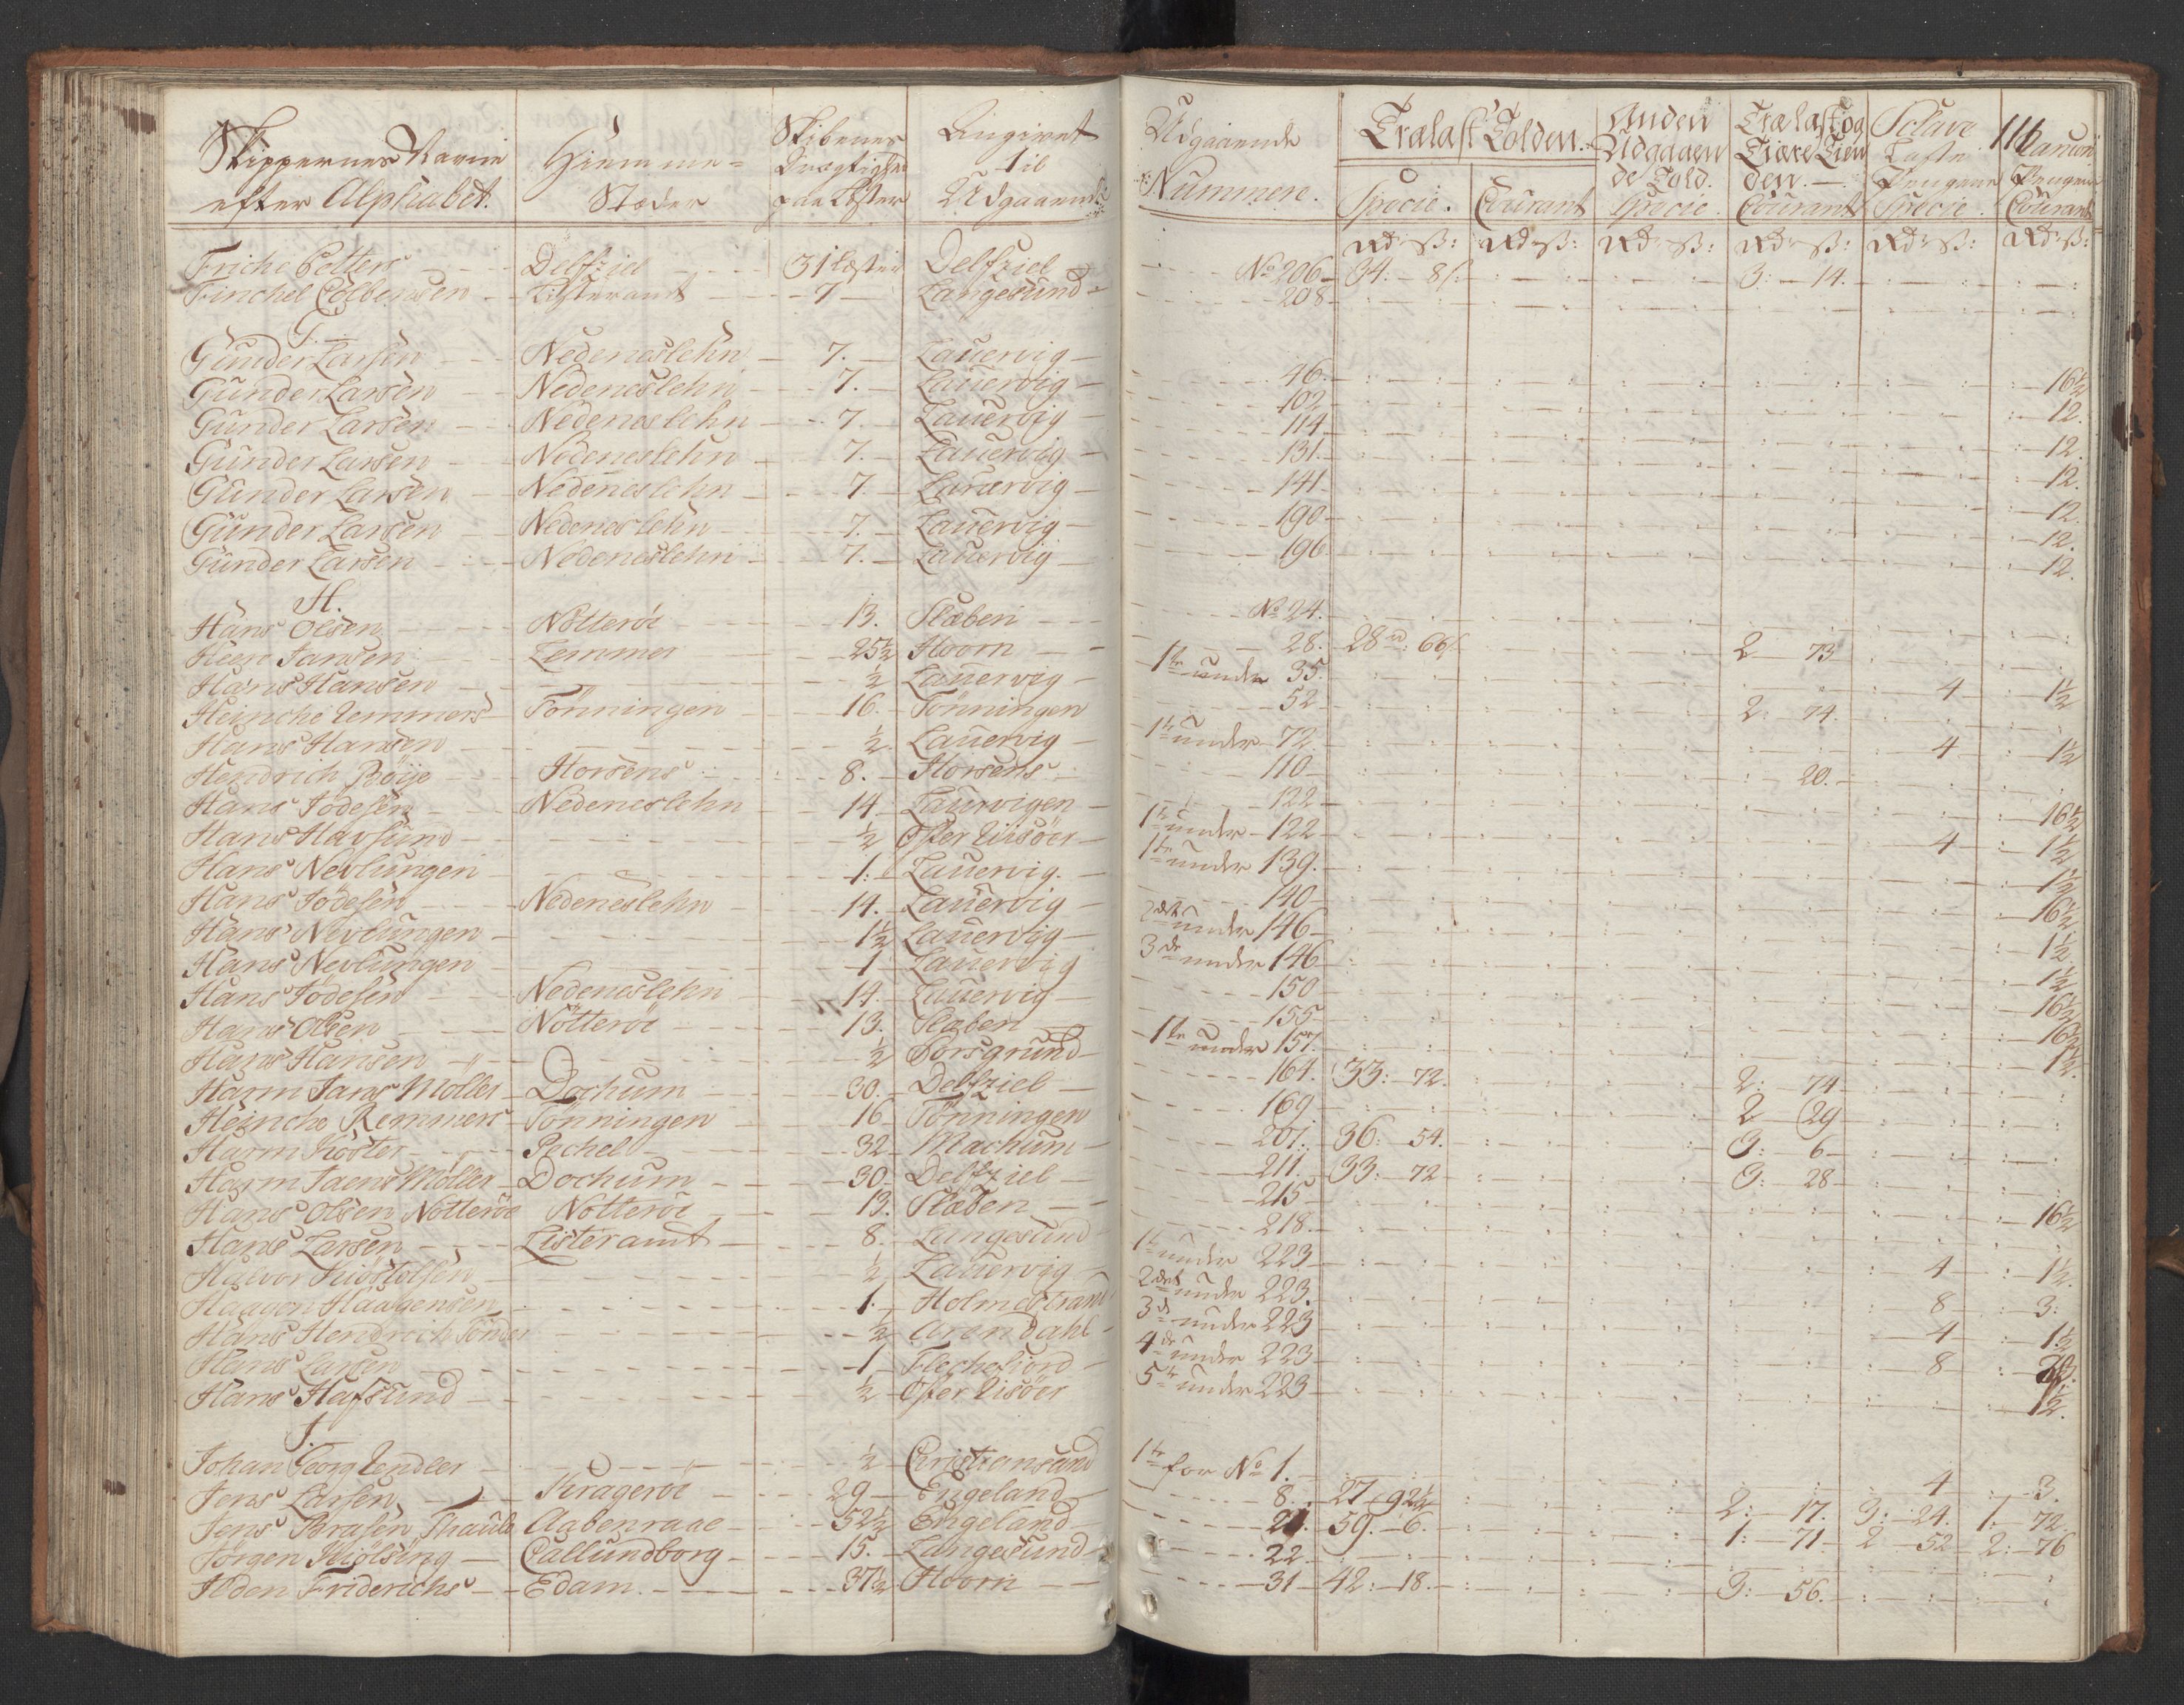 Skippernes Navne efter Alphabet. Hiemme= Stæder Skibenes Drægtighed paa Læster Angivet til Udgaaende Udgaaende Nummere. Trælast Tolden. Specie. Courant Anden Udgaaende Told. Specie. Trælast og Tiære Tienden. Courant Sclave Casse Pengene Specie. 116 Pengene Courant
Rd. ß: Rd. ß: Rd. ß: Rd. ß: Rd. ß: Rd. ß:
Friche Petters Delfziel 31 Læster Delfziel No 206 34: 8ß. 3: 14.
Finchel Colbensen Listeramt 7 Langesund 208
G.
Gunder Larsen Nedeneslehn 7. Lauervig 46. 16½
Gunder Larsen Nedeneslehn 7. Lauervig 102 12.
Gunder Larsen Nedeneslehn 7. Lauervig 114 12.
Gunder Larsen Nedeneslehn 7. Lauervig 131. 12.
Gunder Larsen Nedeneslehn 7 Lauervig 141. 12.
Gunder Larsen Nedeneslehn 7. Lauervig 190 12.
Gunder Larsen Nedeneslehn 7. Lauervig 196 12.
H.
Hans Olsen Nötteröe 13. Slæben No 24.
Heere Jansen Lemmer 25½ Hoorn 28. 28 rd: 66ß 2 73
Hans Hansen ½ Lauervig 1te under 35. 4 1½
Heinche Remmers Tönningen 16. Tönningen 52 2: 74.
Hans Hansen ½. Lauervig 1te under 72. 4 1½
Hendrich Böije Horsens 8. Horsens 110 20.
Hans Jödesen Nedeneslehn 14 Laurvigen 122 16½
Hans Havsund ½ Öster Riisöer 1te under 122 4 1½
Hans Nevlungen 1. Lauervig. 1te under 139. 1½
Hans Jödesen Nedeneslehn 14. Lauervig 140 16½
Hans Nevlungen 1½ Lauervig 2det under 146 1½
Hans Nevlungen 1 Lauervig 3de under 146 1½
Hans Jödesen Nedeneslehn 14. Lauervig 150 16½
Hans Olsen Nötteröe 13. Slæben 155 16½
Hans Hansen ½ Porsgrund 1te under 157. 1½
Harm Jans Möller Dochum 30. Delfziel 164. 33: 72. 2: 74
Heinche Remmers Tönningen 16 Tönningen 169 2 29
Harm Köster Pechel 32 Machum 201. 36: 54. 3: 6
Harm Jaens Möller Dochum 30 Delfziel 211. 33: 72 3: 28
Hans Olsen Nötteröe Nötteröe 13. Slæben 215 16½
Hans Larsen Listeramt 8. Langesund 218.
Halvor Kiöstolsen ½ Lauervig 1te under 223 4 1½.
Haagen Haagensen 1. Holmestrand 2det under 223. 8 3:
Hans Hendrich Tönder ½ Arendahl 3de under 223 4 1½
Hans Larsen 1 Flechefiord 4de under 223 8 3.
Hans Hafsund ½ Öster Riisöer 5te under 223 1½.
J.
Johan Georg Lendeer ½ Christiansand 1te for No 1. 4 3.
Jens Larsen Krageröe 29 Engeland 8. 27 92½ 2: 17. 3: 24. 1. 72.
Jens Brasen Thaule Aabenraae 52½ Engeland 21. 59. 6. 1: 71 2 52 2: 76
Jörgen Kiölsing Callundborg 15. Langesund 22
Ilden Friderichs Edam. 37½ Hoorn 31 42: 18. 3: 56.